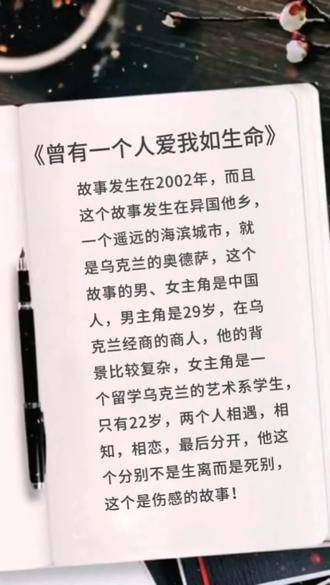 《曾有一个人爱我如生命》
故事发生在2002年，而且
这个故事发生在异国他乡，
一个遥远的海滨城市，就
是乌克兰的奥德萨，这个
故事的男、女主角是中国
人，男主角是29岁，在乌
克兰经商的商人，他的背
景比较复杂，女主角是一
个留学乌克兰的艺术系学生，
只有22岁，两个人相遇，相
知，相恋，最后分开，他这
个分别不是生离而是死别，
这个是伤感的故事！